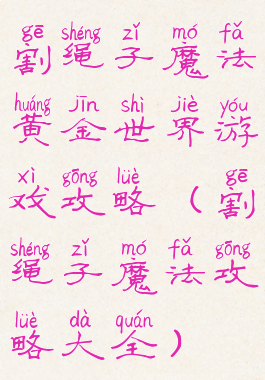 gē shéng zǐ mó fǎ
割绳子魔法
huáng jīn shì jiè yóu
黄金世界游
xì gōng lüè gē
戏攻略（割
shéng zǐ mó fǎ gōng
绳子魔法攻
lüè dà quán
略大全）